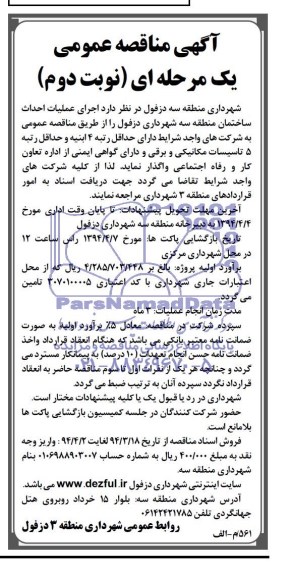 آگهی مناقصه عمومی
یک مرحله ای (نوبت دوم)
شهرداری منطقه سه دزفول در نظر دارد اجرای عملیات احداث
ساختمان منطقه سه شهرداری دزفول را از طریق مناقصه عمومی
به شرکت های واجد شرایط دارای حداقل رتبه ۴ ابنیه و حداقل رتبه
۵ تاسیسات مکانیکی و برقی و دارای گواهی ایمنی از اداره تعاون
کار و رفاه اجتماعی واگذار نماید، لذا از کلیه شرکت های
واجد شرایط تقاضا می گردد جهت دریافت اسناد به امور
قراردادهای منطقه ۳ شهرداری مراجعه نمایند.
آخرین مهلت تحویل پیشنهادات: تا پایان وقت اداری مورخ
۱۳۹۴/۴/۴ به دبیرخانه منطقه سه شهرداری دزفول
تاریخ بازگشایی پاکت ها: مورخ ۱۳۹۴/۴/۷ راس ساعت ۱۲
در محل شهرداری مرکزی
برآورد اولیه پروژه: بالغ بر ۴/۲۸۵/۷۰۳/۴۴۸ ریال که از محل
اعتبارات جاری شهرداری با کد اعتباری ۳۰۷۰۱۰۰۰۰۵ تامین
می گردد.
مدت زمان انجام عملیات: ۳ ماه
سپرده شرکت در مناقصه معادل ۵٪ برآورد اولیه به صورت
ضمانت نامه معتبر بانکی می باشد که هنگام انعقاد قرارداد واخذ
ضمانت نامه حسن انجام تعهدات (۱۰ درصد) به پیمانکار مسترد می
گردد و چنانچه هر یک از نفرات اول تا سوم مناقصه حاضر به انعقاد
قرارداد نگردد سپرده آنان به ترتیب ضبط می گردد.
شهرداری در رد یا قبول یک یا کلیه پیشنهادات مختار است.
حضور شرکت کنندگان در جلسه کمیسیون بازگشایی پاکت ها
بلامانع است.
فروش اسناد مناقصه از تاریخ ۹۴/۳/۱۸ لغایت ۹۴/۴/۲ : واریز وجه
نقد به مبلغ ۴۰۰/۰۰۰ ریال به شماره حساب ۰۱۰۶۹۸۸۹۰۳۰۰۷ بنام
شهرداری منطقه سه.
سایت اینترنتی شهرداری دزفول www.dezful.ir می باشد.
آدرس شهرداری منطقه سه: بلوار ۱۵ خرداد روبروی هتل
جهانگردی تلفن ۰۶۱۴۲۴۲۱۷۸۵
روابط عمومی شهرداری منطقه ۳ دزفول
۵۶۱/م-الف
ParsNamadData